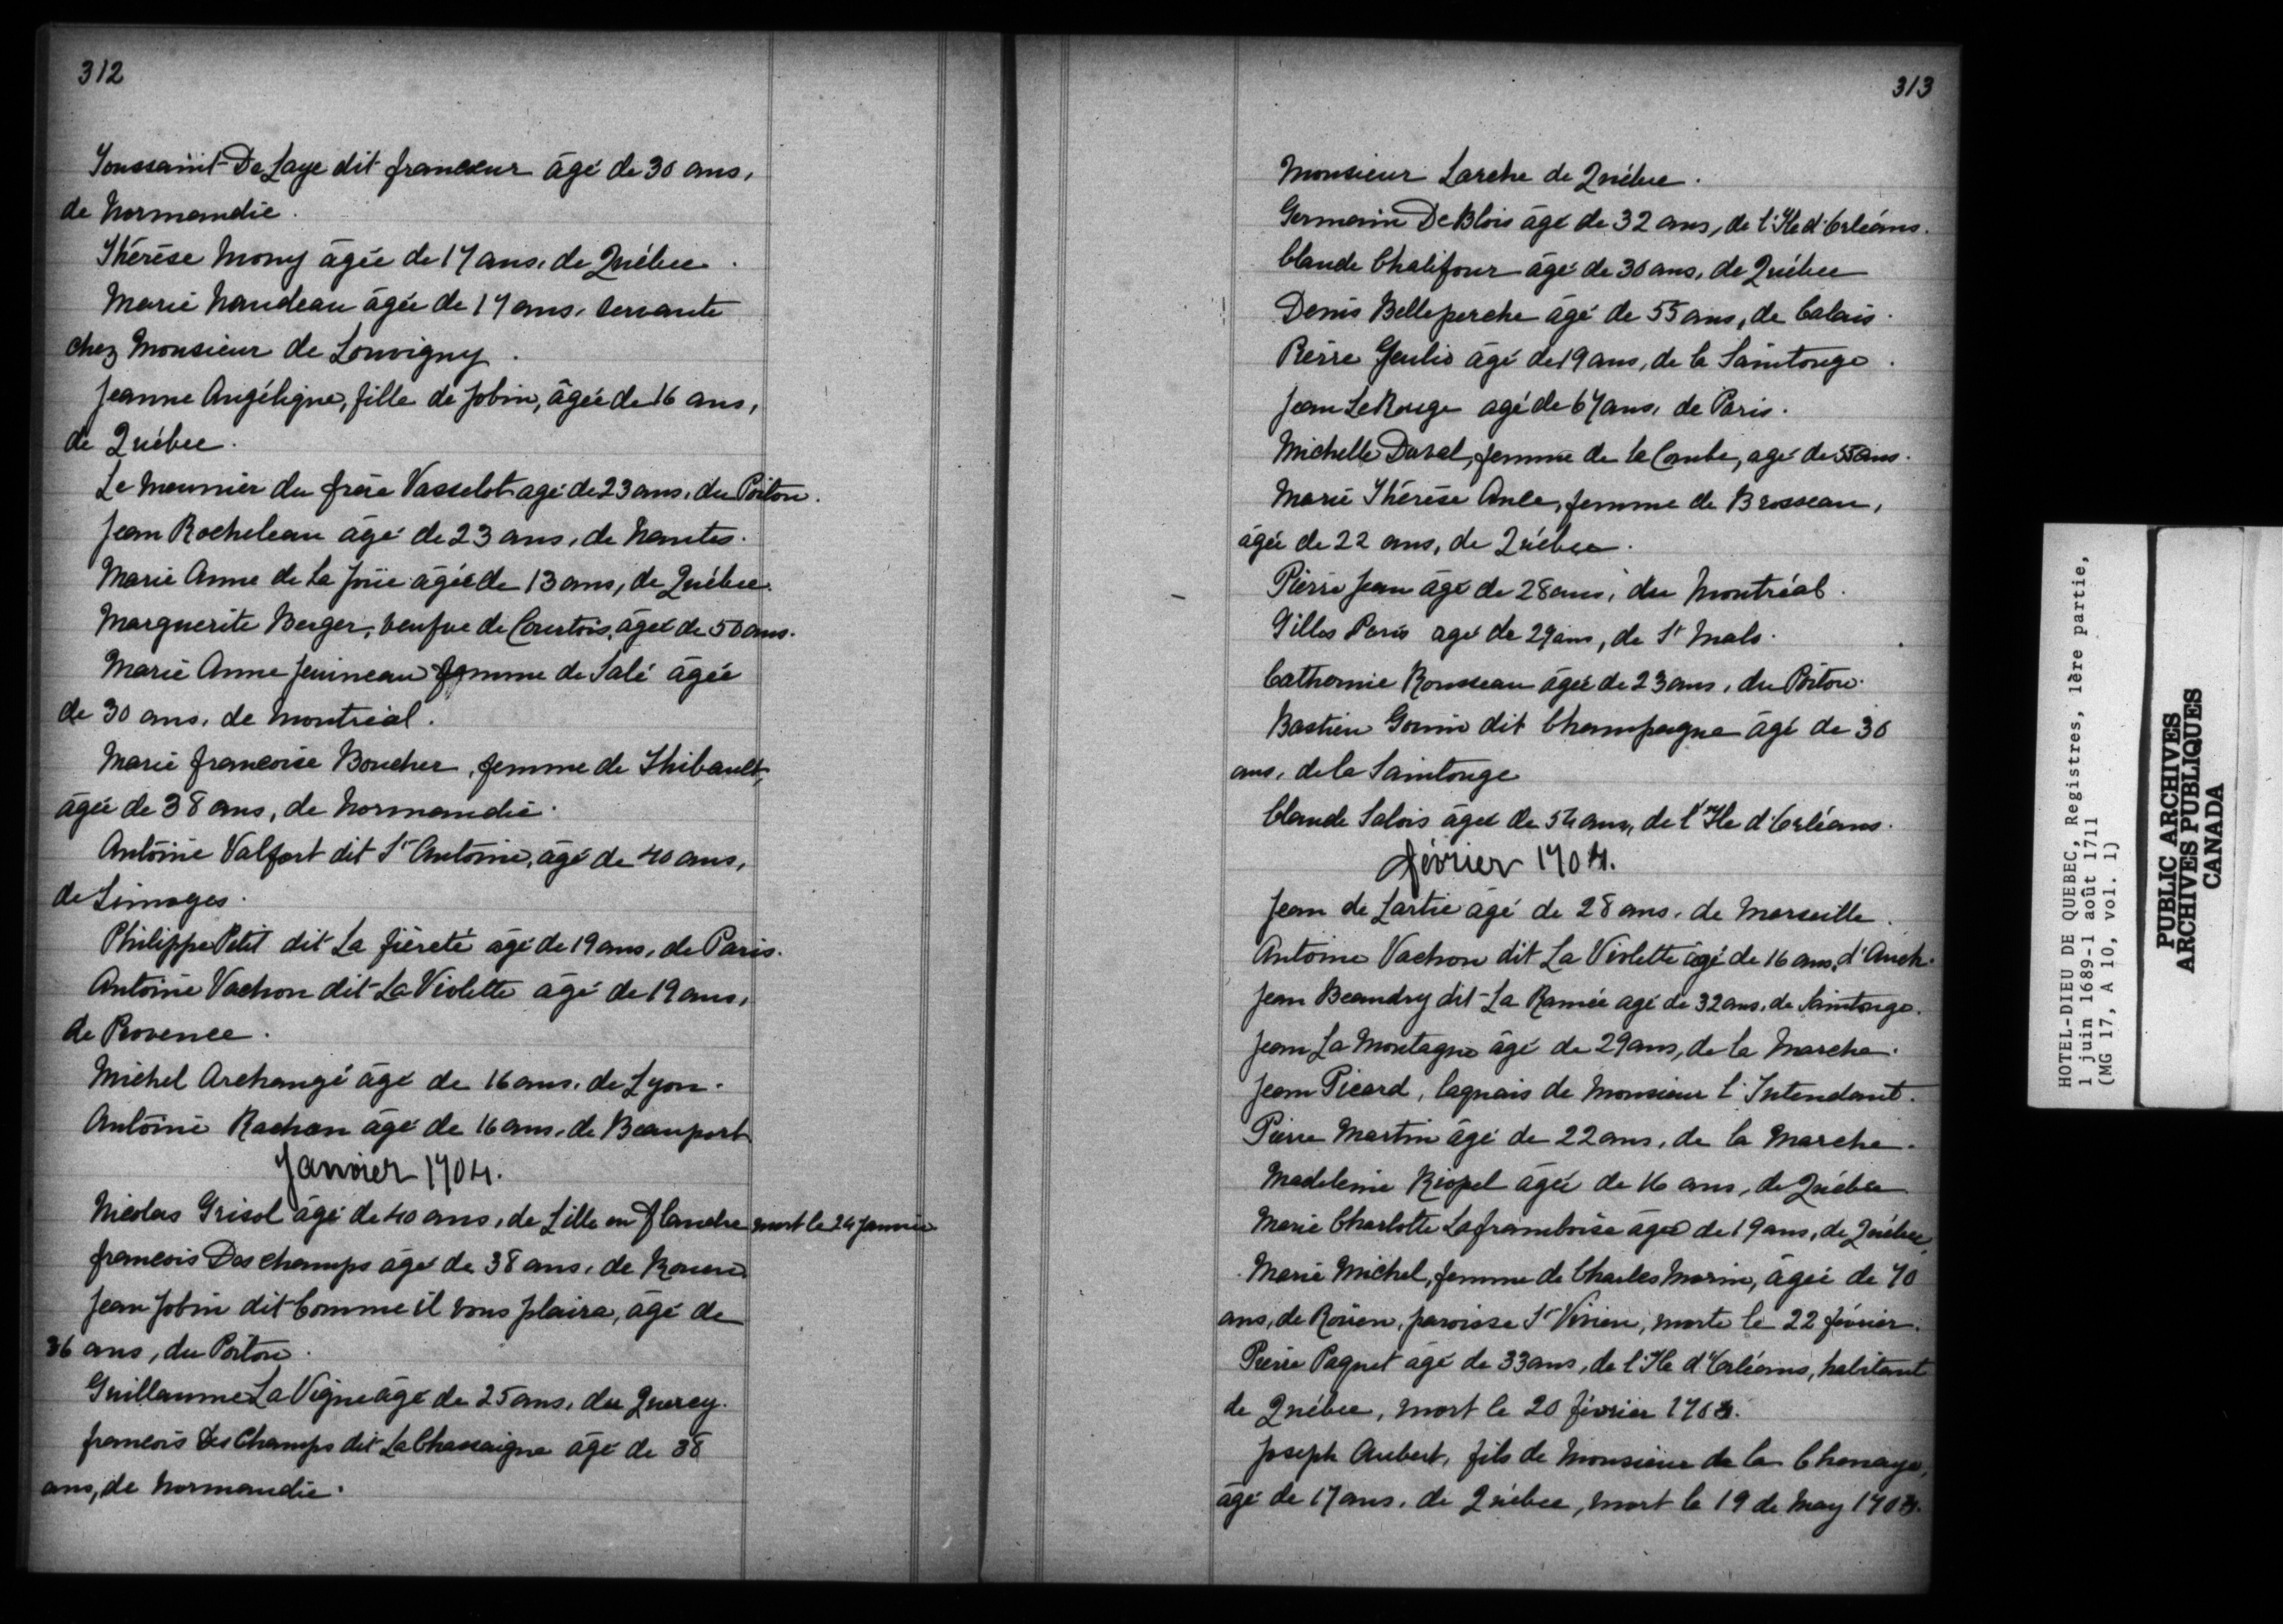 312
Toussaint De Laye dit francœur âgé de 30 ans,
de Normandie.
Thérèse Mony âgée de 17 ans, de Québec.
Marie Naudeau âgée de 17 ans, servante
chez Monsieur de Louvigny.
Jeanne Angélique, fille de Jobin, âgée de 16 ans,
de Québec.
Le Meunier du frère Vasselot agé de 23 ans, du Poitou.
Jean Rocheleau âgé de 23 ans, de Nantes.
Marie Anne de La Joüe âgée de 13 ans, de Québec.
Marguerite Berger, veufve de Courtois, âgée de 50 ans.
Marie Anne femme de Salé âgée
de 30 ans, de Montréal.
Marie francoise Boucher, femme de Thibault,
âgée de 38 ans, de Normandie.
Antoine Valfort dit St Antoine, âgé de 40 ans,
de Limoges.
Philippe Petit dit La fiereté âgé de 19 ans, de Paris.
Antoine Vachon dit La Violette âgé de 19 ans,
de Provence.
Michel Archangé âgé de 16 ans, de Lyon.
Antoine Rachon âgé de 16 ans, de Beauport
Janvier 1704.
Nicolas Grisol âgé de 40 ans, de Lille en Flandre mort le 24 Janvier
francois Des champs âgé de 38 ans, de Rouen
Jean Jobin dit Comme il vous plaira, âgé de
36 ans, du Poitou.
Guillaume La Vigne âgé de 25 ans, du Quercy.
francois Des Champs dit La Chassaigne âgé de 38
ans, de Normandie.
313
Monsieur Larche de Québec.
Germain De Blois âgé de 32 ans, de l'Ile d'Orléans.
Claude Chalifour âgé de 30 ans, de Québec
Denis Belleperche âgé de 55 ans, de Calais.
Pierre âgé de 19 ans, de la Saintonge.
Jean Le Rouge agé de 67 ans, de Paris.
Michelle Duval, femme de la Combe, agé de 55 ans.
Marie Thérèse femme de Brosseau,
âgée de 22 ans, de Québec.
Pierre Jean âgé de 28 ans, du Montréal.
Gilles Paris agé de 29 ans, de St Malo.
Catherine Rousseau âgée de 23 ans, du Poitou.
Bastien Gonin dit Champagne âgé de 30
ans, de la Saintonge
Claude Salois âgé de 54 ans, de l'Ile d'Orléans.
février 1704.
Jean de Lartie âgé de 28 ans, de Marseille.
Antoine Vachon dit La Violette âgé de 16 ans, d'Auch.
Jean Beaudry dit La Ramée agé de 32 ans, de Saintonge.
Jean La Montagne âgé de 29 ans, de la Marche.
Jean Picard, laquais de Monsieur l'Intendant.
Pierre Martin âgé de 22 ans, de la Marche.
Madeleine Riopel âgée de 16 ans, de Québec
Marie Charlotte Laframboise âgée de 19 ans, de Québec,
Marie Michel, femme de Charles Marin, âgée de 70
ans, de Roüen, paroisse St Vivien, morte le 22 février.
Pierre Paquet âgé de 33 ans, de l'Ile d'Orléans, habitant
de Québec, mort le 20 février 1704.
Joseph Aubert, fils de Monsieur de la Chenaye,
âgé de 17 ans, de Québec, mort le 19 de May 1704.
HOTEL-DIEU DE QUEBEC, Registres, 1ère partie,
1 juin 1689-1 août 1711
(MG 17, A 10, vol. 1)
PUBLIC ARCHIVES
ARCHIVES PUBLIQUES
CANADA